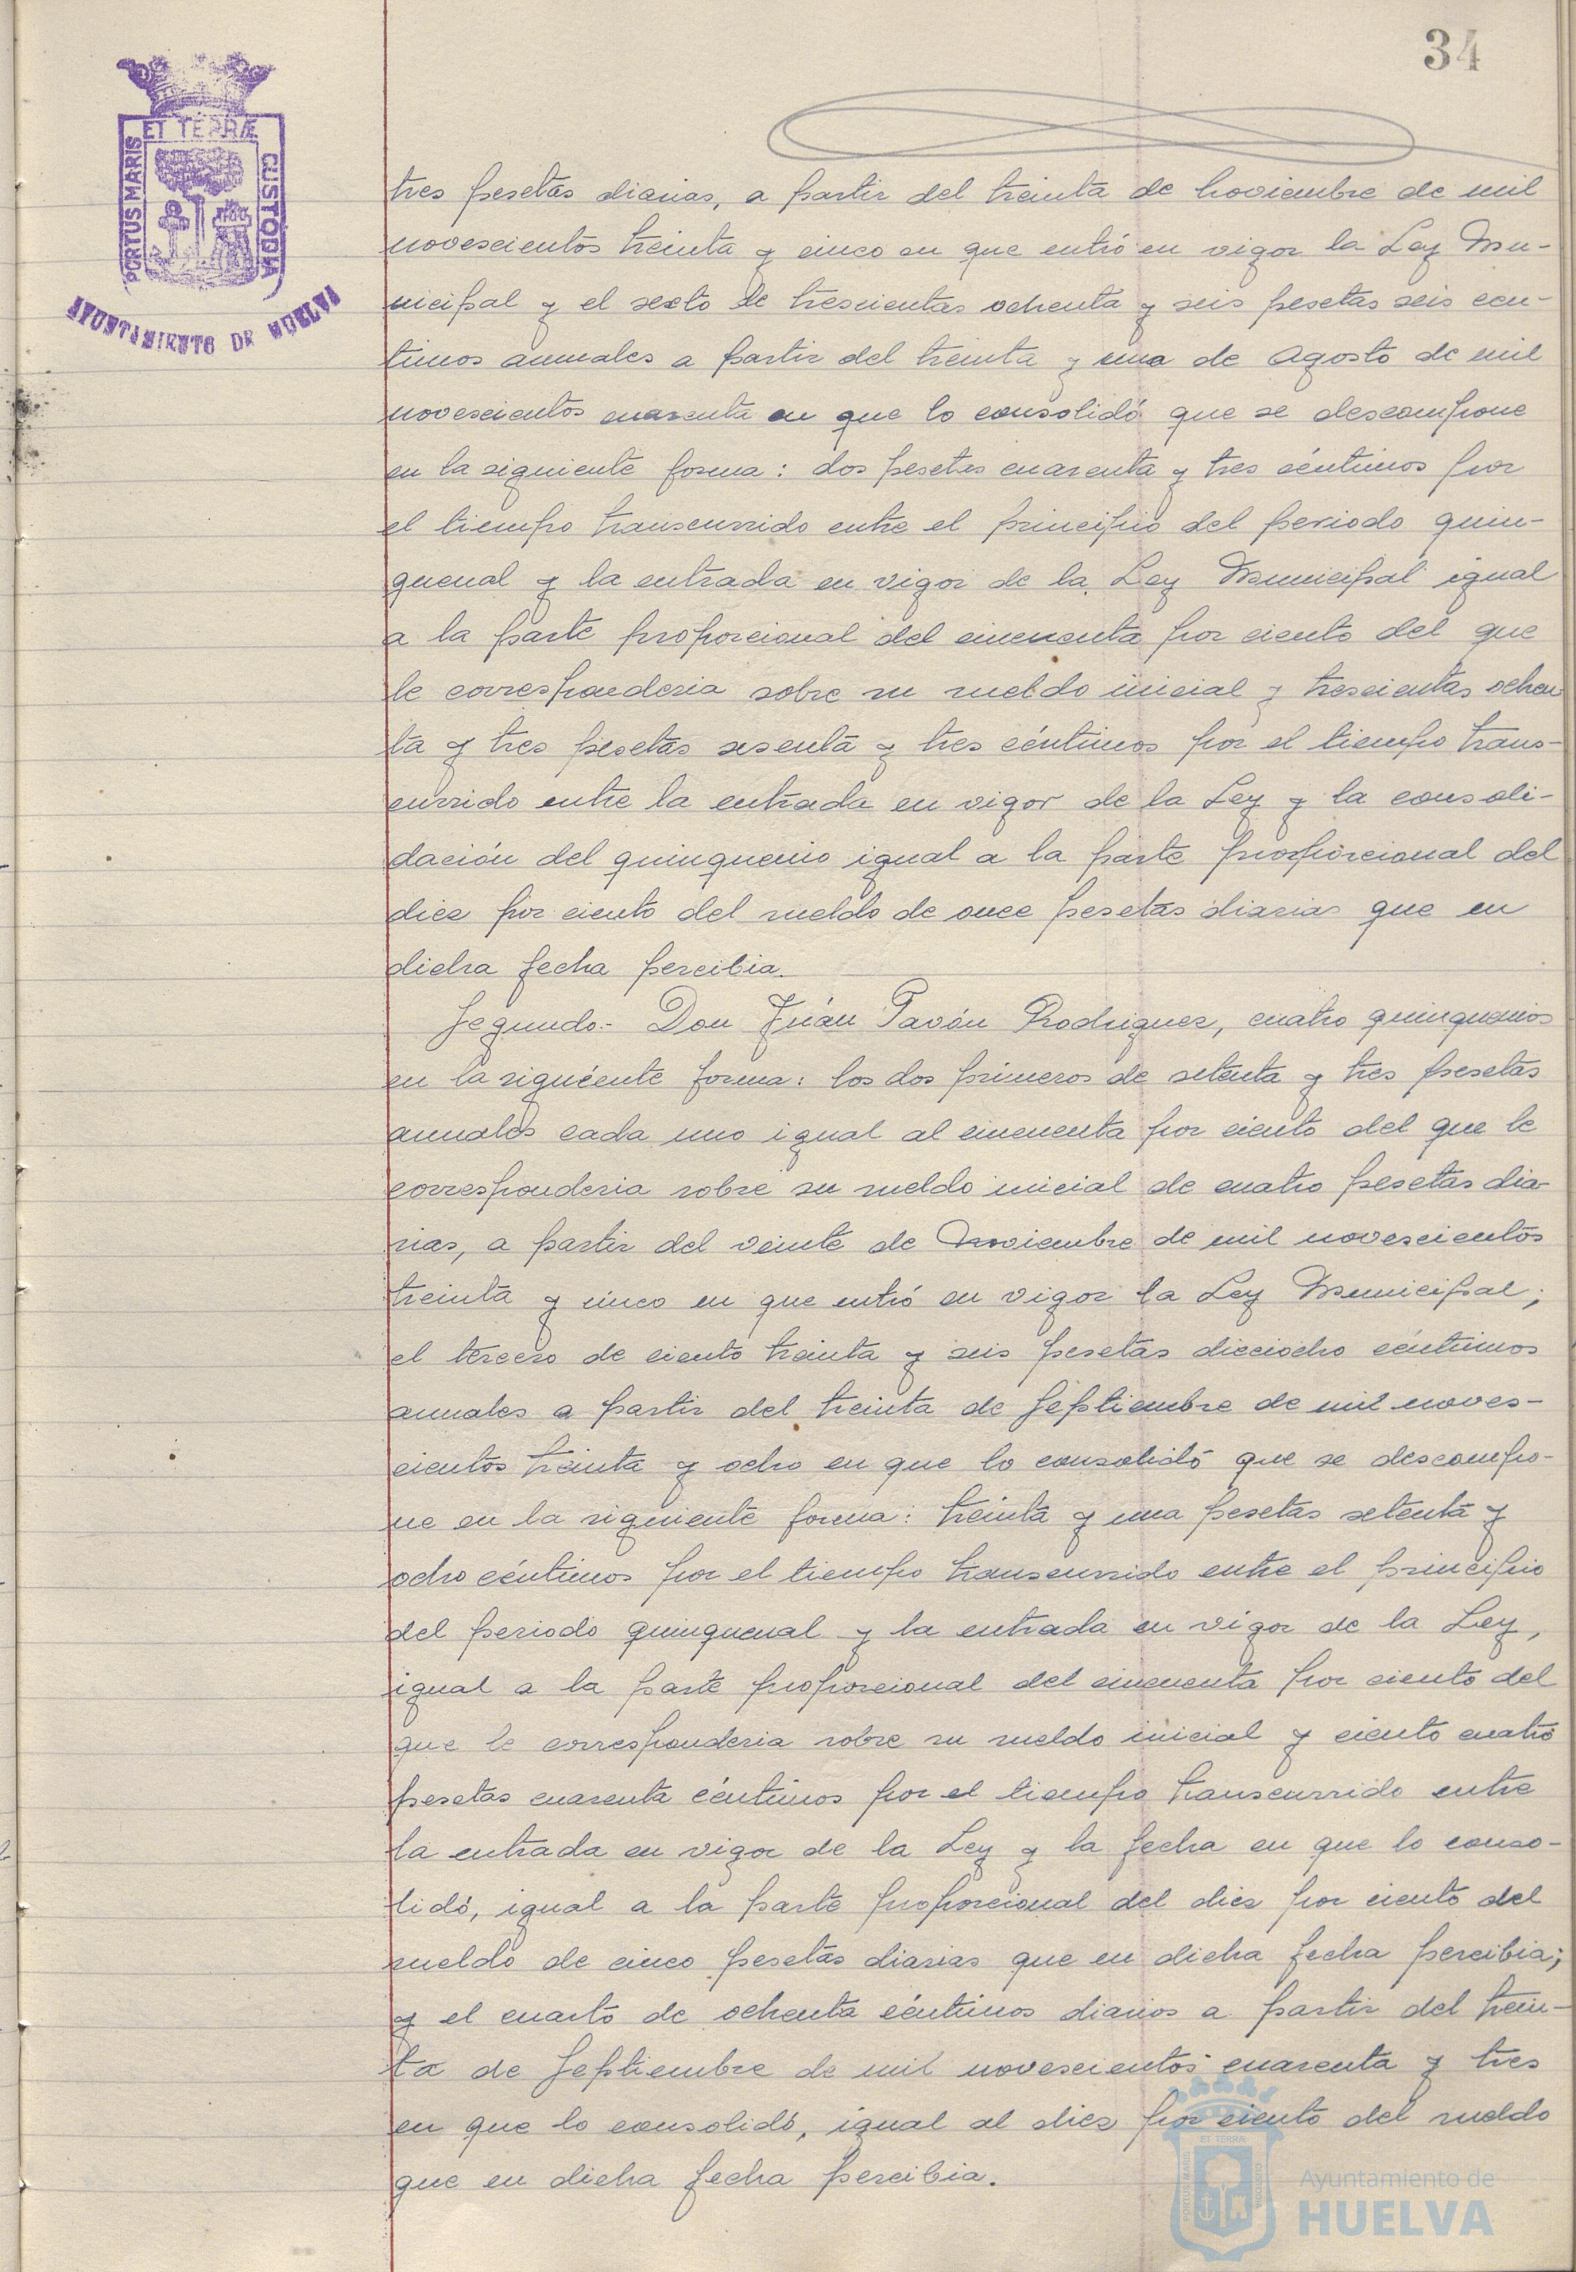 34
ET TERRÆ
PORTUS MARIS
CUSTODIA
AYUNTAMIENTO DE HUELVA
tres pesetas diarias, a partir del treinta de noviembre de mil
novescientos treinta y cinco en que entró en vigor la Ley Mu-
nicipal y el sexto de trescientas ochenta y seis pesetas seis cen-
timos anuales a partir del treinta y una de Agosto de mil
novescientos cuarenta en que lo consolidó que se descompone
en la siguiente forma: dos pesetas cuarenta y tres céntimos por
el tiempo transcurrido entre el principio del periodo quin-
quenal y la entrada en vigor de la Ley Municipal igual
a la parte proporcional del cincuenta por ciento del que
le corresponderia sobre su sueldo inicial y trescientas ochen
ta y tres pesetas sesenta y tres céntimos por el tiempo trans-
currido entre la entrada en vigor de la Ley y la consoli-
dación del quinquenio igual a la parte proporcional del
diez por ciento del sueldo de once pesetas diarias que en
dicha fecha percibia.
Segundo.- Don Juán Pavón Rodriguez, cuatro quinquenios
en la siguiente forma: los dos primeros de setenta y tres pesetas
anuales cada uno igual al cincuenta por ciento del que le
corresponderia sobre su sueldo inicial de cuatro pesetas dia-
rias, a partir del veinte de Noviembre de mil novescientos
treinta y cinco en que entró en vigor la Ley Municipal;
el tercero de ciento treinta y seis pesetas dieciocho céntimos
anuales a partir del treinta de Septiembre de mil noves-
cientos treinta y ocho en que lo consolidó que se descompo-
ne en la siguiente forma: treinta y una pesetas setenta y
ocho céntimos por el tiempo transcurrido entre el principio
del periodo quinquenal y la entrada en vigor de la Ley,
igual a la parte proporcional del cincuenta por ciento del
que le corresponderia sobre su sueldo inicial y ciento cuatro
pesetas cuarenta céntimos por el tiempo transcurrido entre
la entrada en vigor de la Ley y la fecha en que lo conso-
lidó, igual a la parte proporcional del diez por ciento del
sueldo de cinco pesetas diarias que en dicha fecha percibia;
y el cuarto de ochenta céntimos diarios a partir del trein-
ta de Septiembre de mil novescientos cuarenta y tres
en que lo consolidó, igual al diez por ciento del sueldo
que en dicha fecha percibia.
ET TERRÆ
PORTUS MARIS
CUSTODIA
Ayuntamiento de
HUELVA